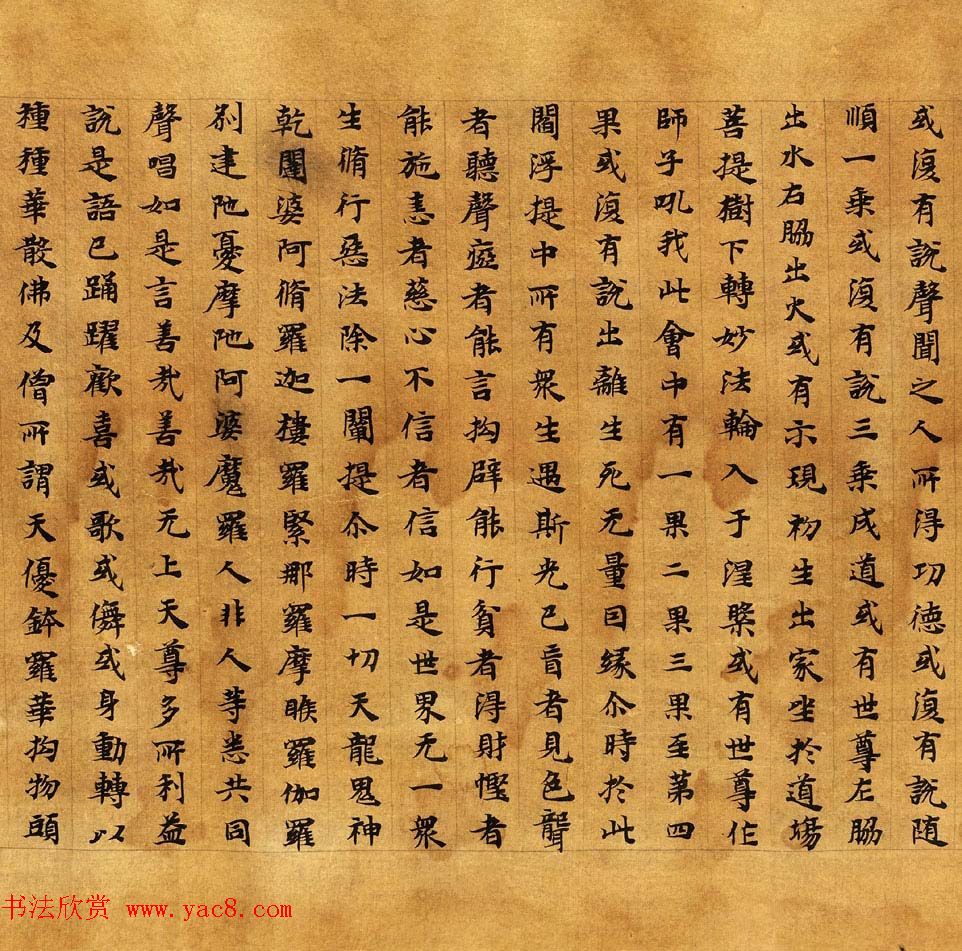 或復有說聲聞之人所得功德或復有說随
順一乗或復有說三乗成道或有世尊左脇
出水右脇出火或有示現初生出家坐於道場
菩提樹下轉妙法輪入于涅槃或有世尊作
師子吼我此會中有一果二果三果至第四
果或復有說出離生死无量因緣尒時於此
閻浮提中所有衆生遇斯光已盲者見色聾
者聽聲瘂者能言拘躃能行貧者得財慳者
能施恚者慈心不信者信如是世界无一衆
生脩行惡法除一闡提尒時一切天龍鬼神
乾闥婆阿脩羅迦樓羅緊那羅摩睺羅伽羅
剎建陁憂摩陁阿婆魔羅人非人等悉共同
聲唱如是言善㢤善㢤无上天尊多所利益
說是語已踊躍歡喜或歌或儛或身動轉以
種種華散佛及僧所謂天優鉢羅華拘物頭
书法欣赏 www.yac8.com